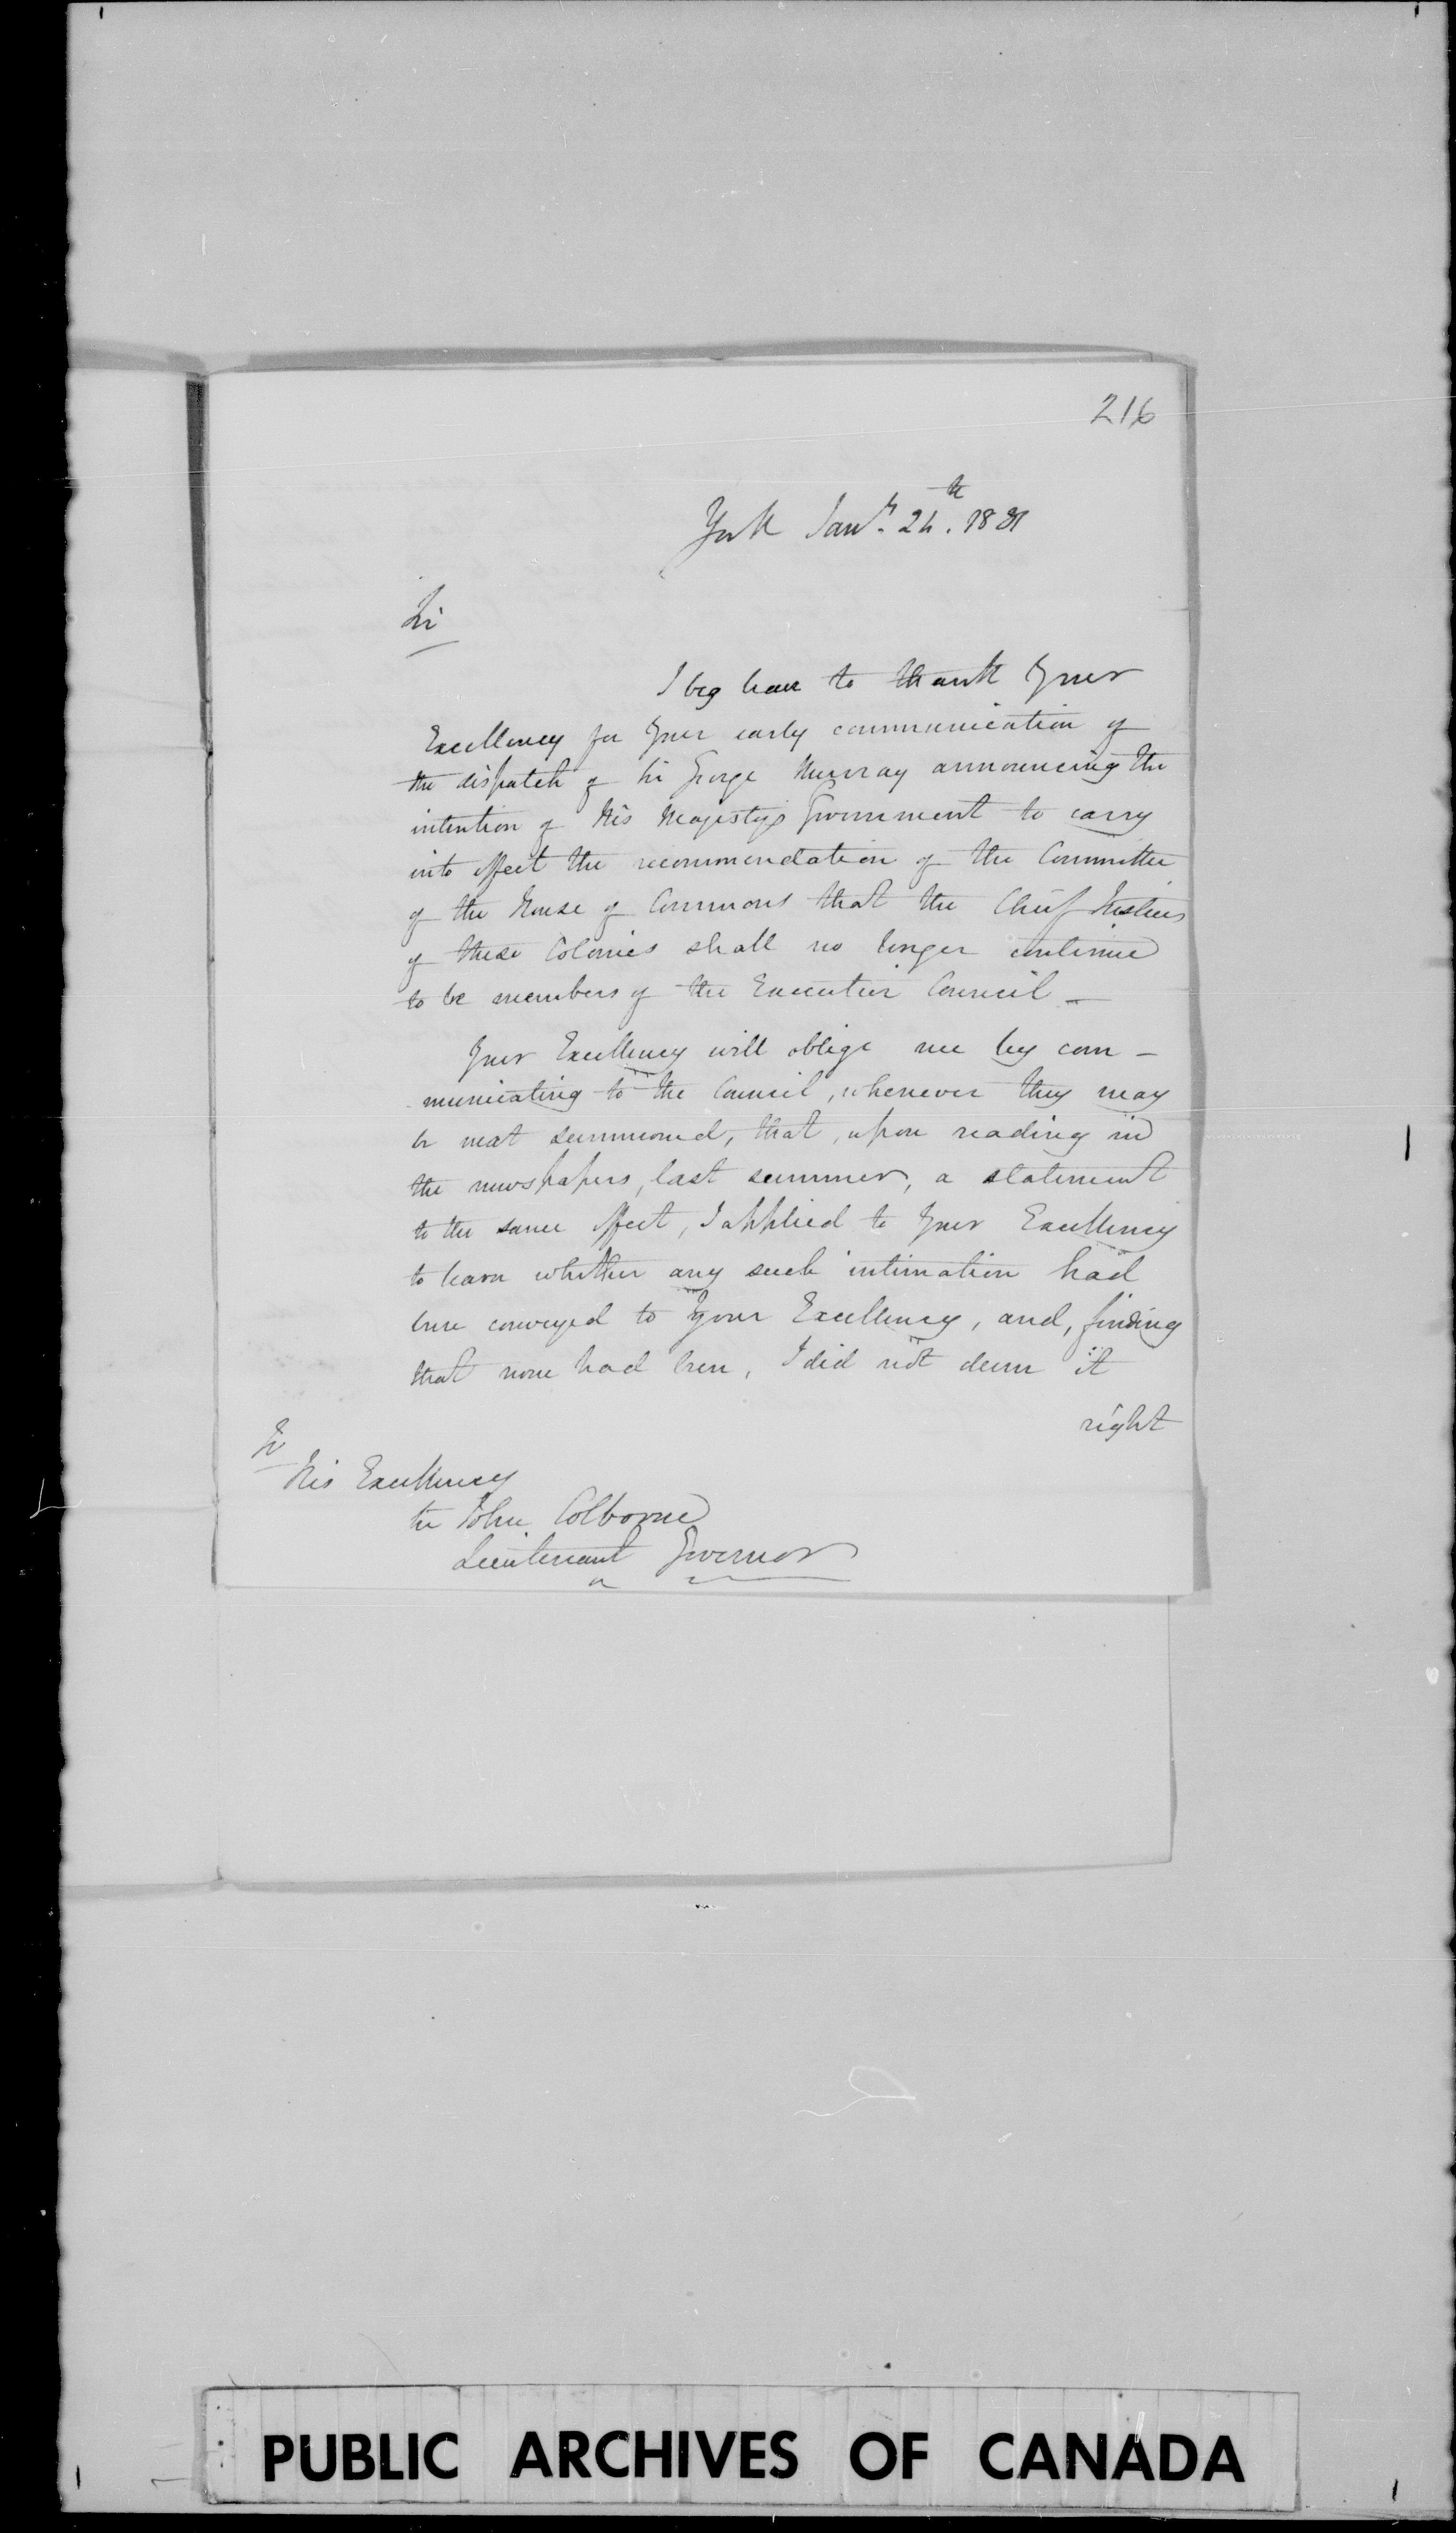 216
York Jany. 24th. 1831
Sir
I beg leave to thank Your
Excellency for Your early communication of
the dispatch of Sir George Murray announcing the
intention of His Majesty's Government to carry
into effect the recommendation of the Committee
of the House of Commons that the Chief Justices
of these Colonies shall no longer continue
to be members of the Executive Council –
Your Excellency will oblige me by com-
municating to the Council, whenever they may
be next summoned, that, upon reading in
the newspapers, last summer, a statement
to the same effect, I applied to Your Excellency
to learn whether any such intimation had
been conveyed to Your Excellency, and, finding
that none had been, I did not deem it
right
To
His Excellency
Sir John Colborne
Lieutenant Governor
PUBLIC ARCHIVES OF CANADA